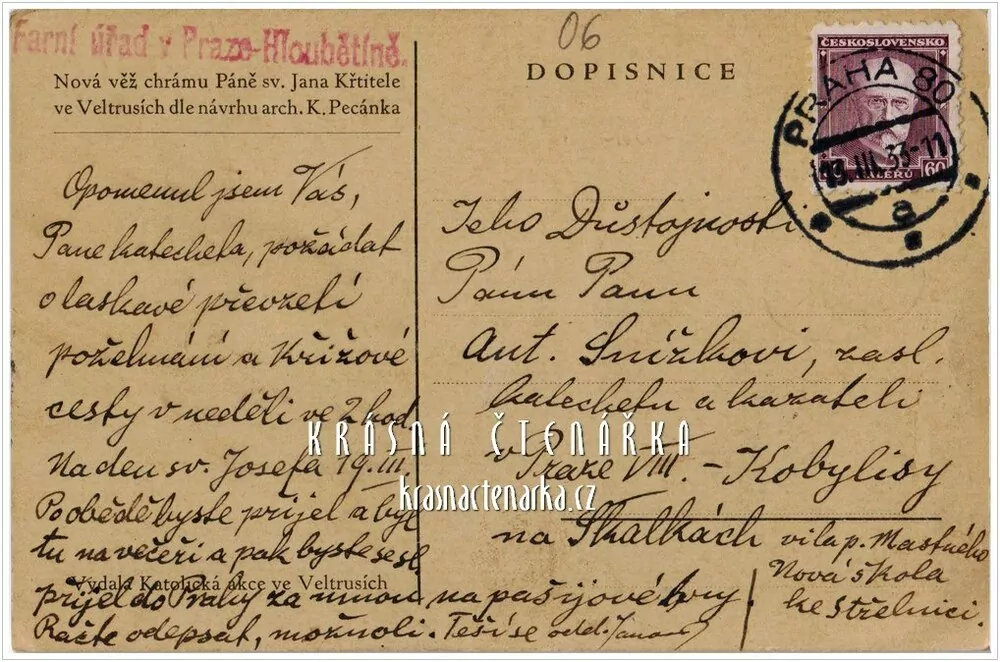 Farní úřad v Praze-Hloubětíně.
Nová věž chrámu Páně sv. Jana Křtitele
ve Veltrusích dle návrhu arch. K. Pecánka
Opomenul jsem Vás,
Pane katecheta, požádat
o laskavé převzetí
požehnání a Křížové
cesty v neděli ve 2 hod.
na den sv. Josefa 19. III.
Po obědě byste přijel a byl
tu na večeři a pak byste se sl.
Vydala Katolická akce ve Veltrusích
přijel do Prahy za mnou na pašijové hry.
Račte odepsat, možno-li. Těší se odd.
06
DOPISNICE
ČESKOSLOVENSKO
60
HALÉŘŮ
PRAHA 80
13.III.33-11
a
Jeho Důstojnosti
Pánu Panu
Ant. Snížkovi, zasl.
katechetu a kazateli
v Praze VIII. - Kobylisy
na Skalkách vila p. Mastného
Nová škola
ke střelnici.
KRÁSNÁ ČTENÁŘKA
krasnactenarka.cz